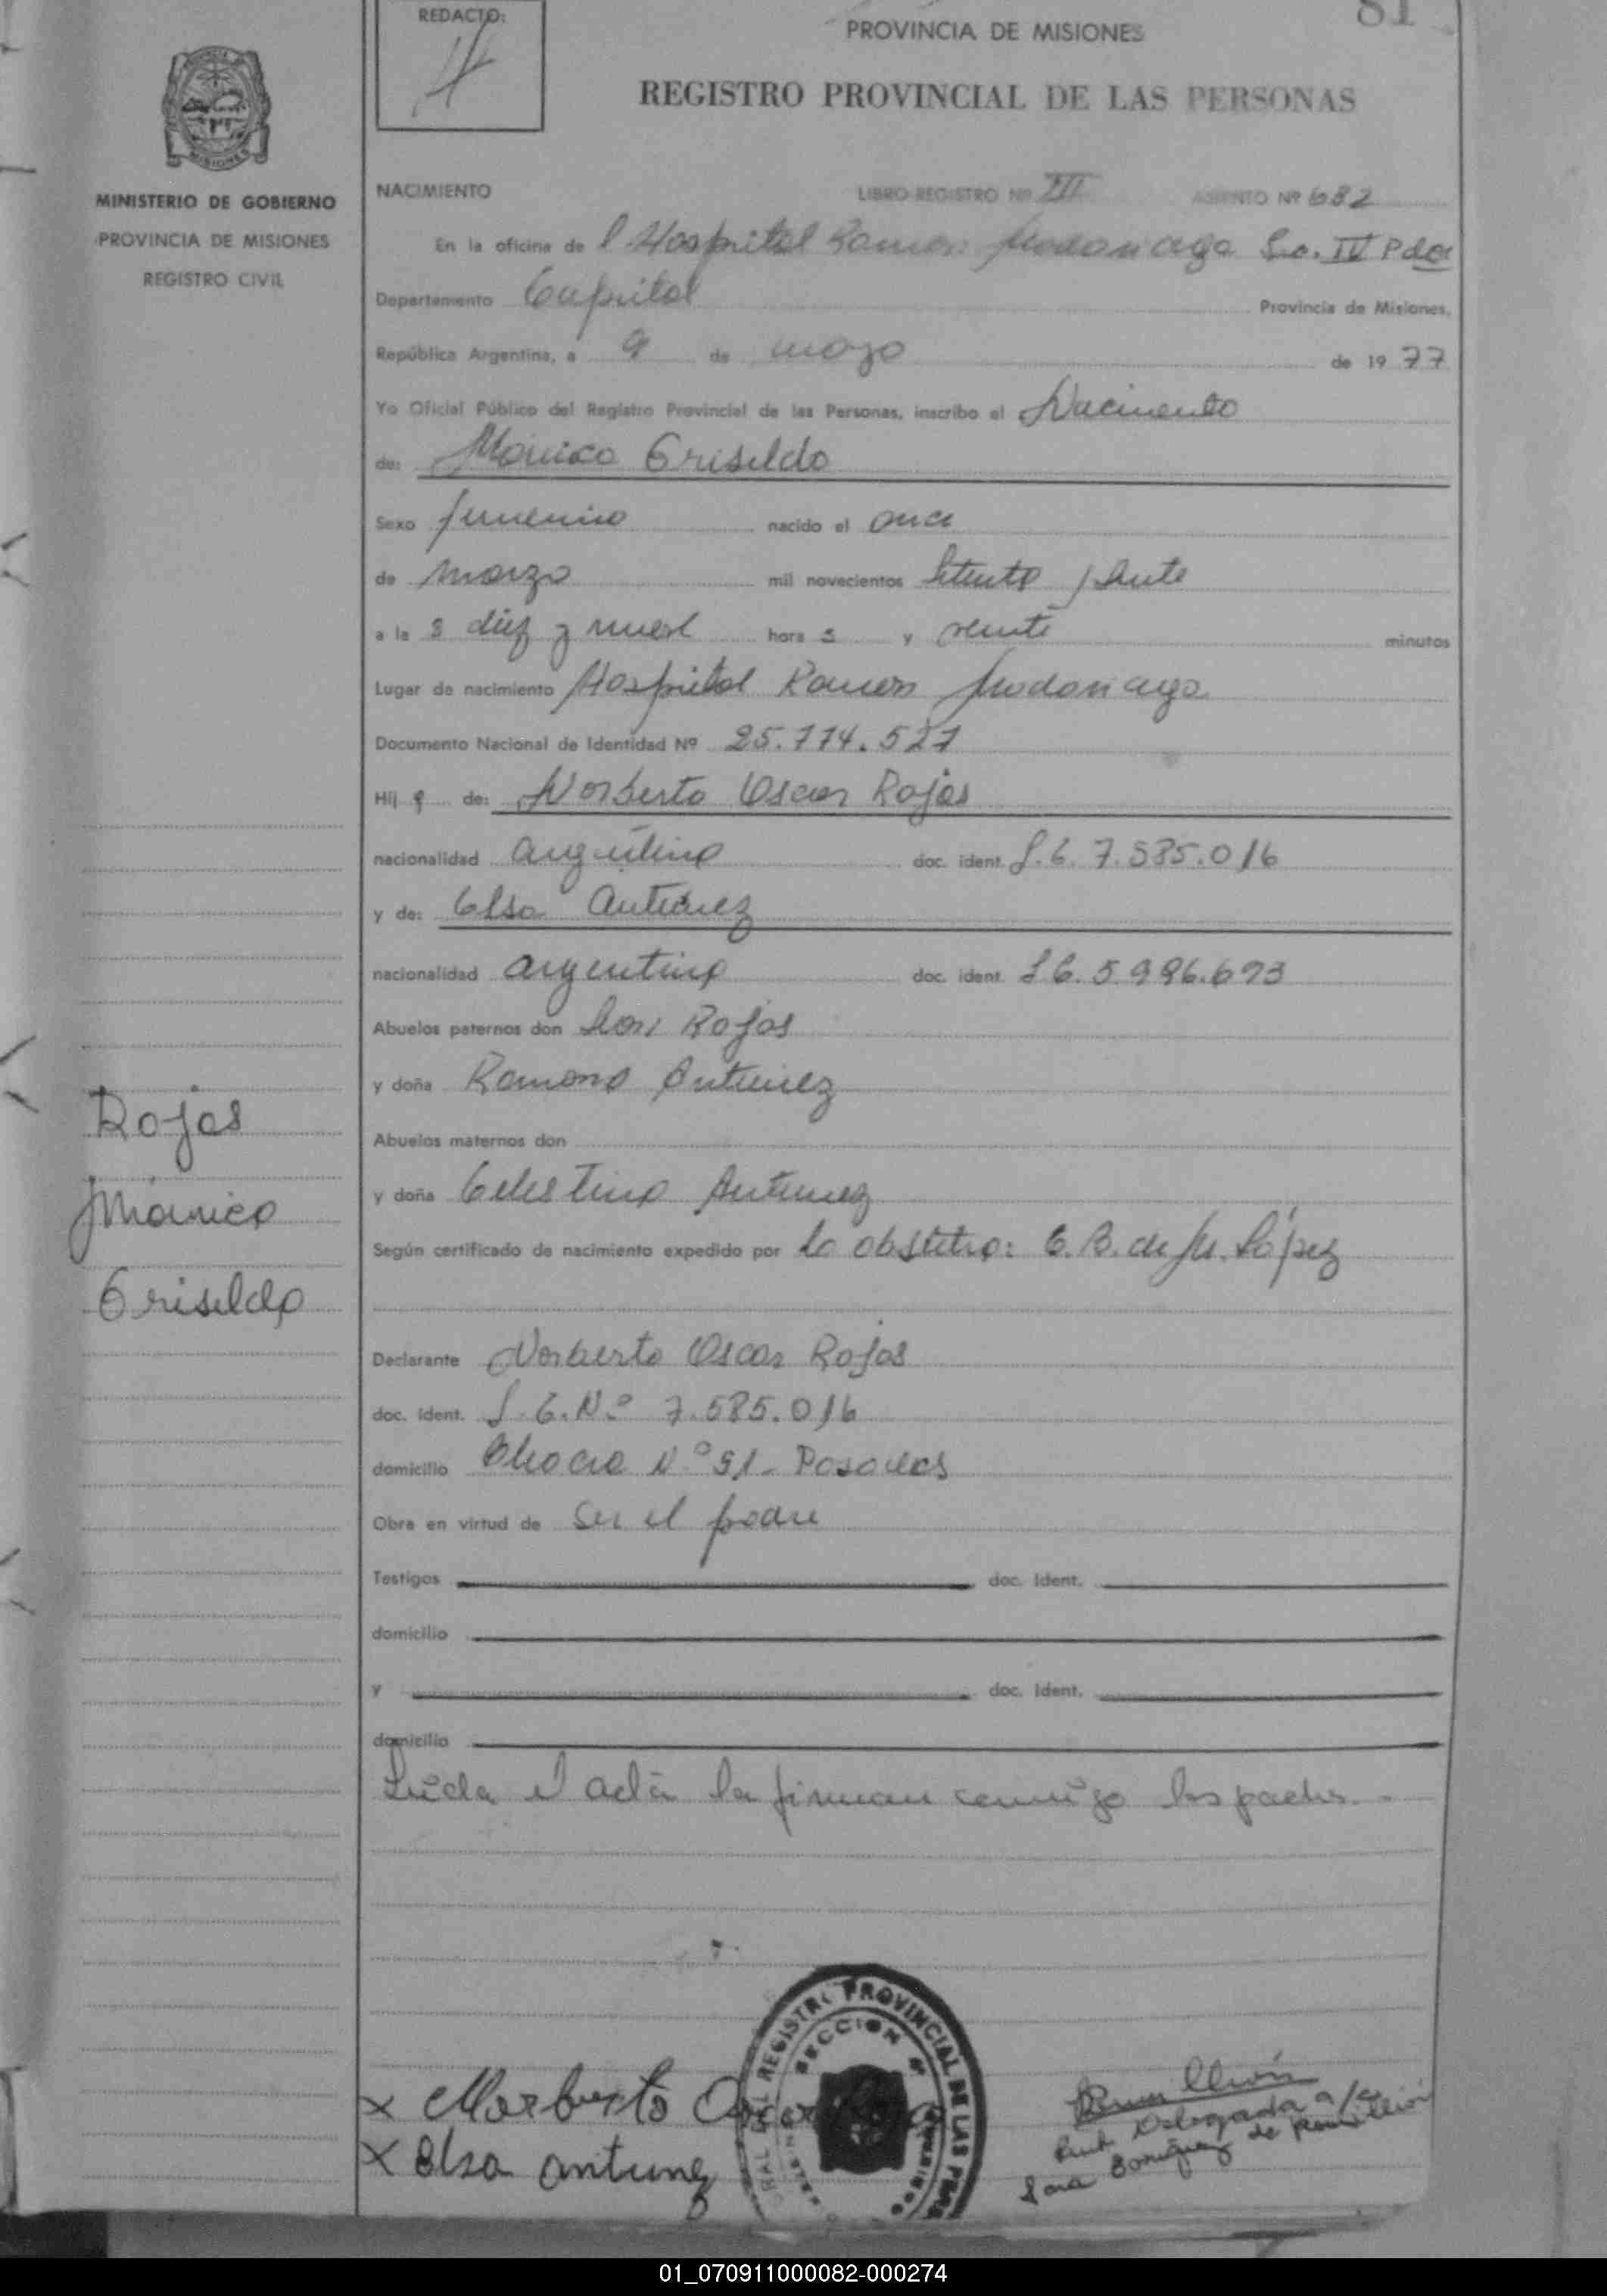 REDACTO:
81
PROVINCIA DE MISIONES
REGISTRO PROVINCIAL DE LAS PERSONAS
MISIONES
MINISTERIO DE GOBIERNO
PROVINCIA DE MISIONES
REGISTRO CIVIL
NACIMIENTO LIBRO REGISTRO Nº III ASIENTO Nº 682
En la oficina de l Hospital Ramon Madariaga Sec. IV Pdas
Departamento Capital Provincia de Misiones,
República Argentina, a 9 de mayo de 1977
Yo Oficial Público del Registro Provincial de las Personas, inscribo el Nacimiento
de: Mónica Griselda
Sexo femenino nacido el once
de marzo mil novecientos setenta y siete
a la s diez y nueve hora s y veinte minutos
Lugar de nacimiento Hospital Ramon Madariaga
Documento Nacional de Identidad Nº 25.774.527
Hij a de: Norberto Oscar Rojas
nacionalidad argentina doc. ident. L.E. 7.585.016
y de: Elsa Antunez
nacionalidad argentina doc. ident. L.C. 5.996.693
Abuelos paternos don Rojas
y doña Ramona Antunez
Abuelos maternos don
y doña Celestina Antunez
Según certificado de nacimiento expedido por la obstetra: C. B. de M. López
Rojas
Mónica
Griselda
Declarante Norberto Oscar Rojas
doc. ident. L.E. Nº 7.585.016
domicilio Nº 91 - Posadas
Obra en virtud de ser el padre
Testigos doc. ident.
domicilio
y doc. ident.
domicilio
Leida el acta la firman conmigo los padres.-
REGISTRO PROVINCIAL DE LAS
SECCION 4
x Norberto Oscar Rojas
x Elsa antunez
Delegada a/c
de
01_070911000082-000274